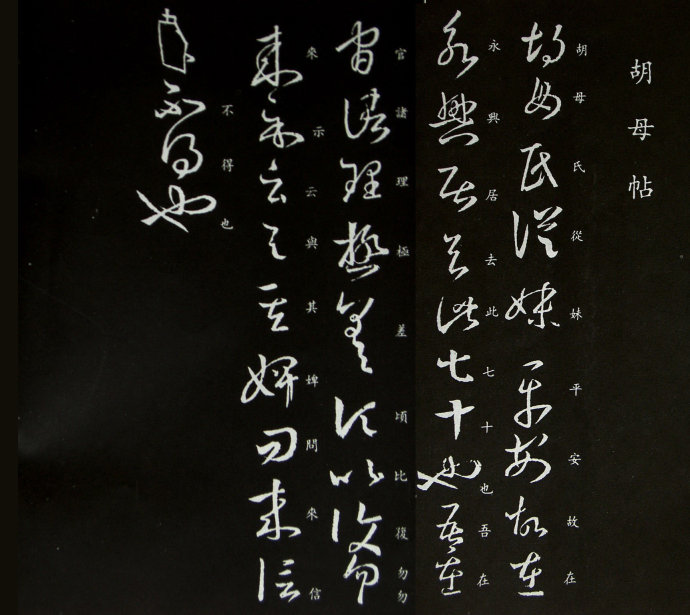 胡母帖
胡母氏從妹平安故在
永興居去此七十也吾在
官諸理極差頃比復勿勿
來示云與其婢問來信
不得也